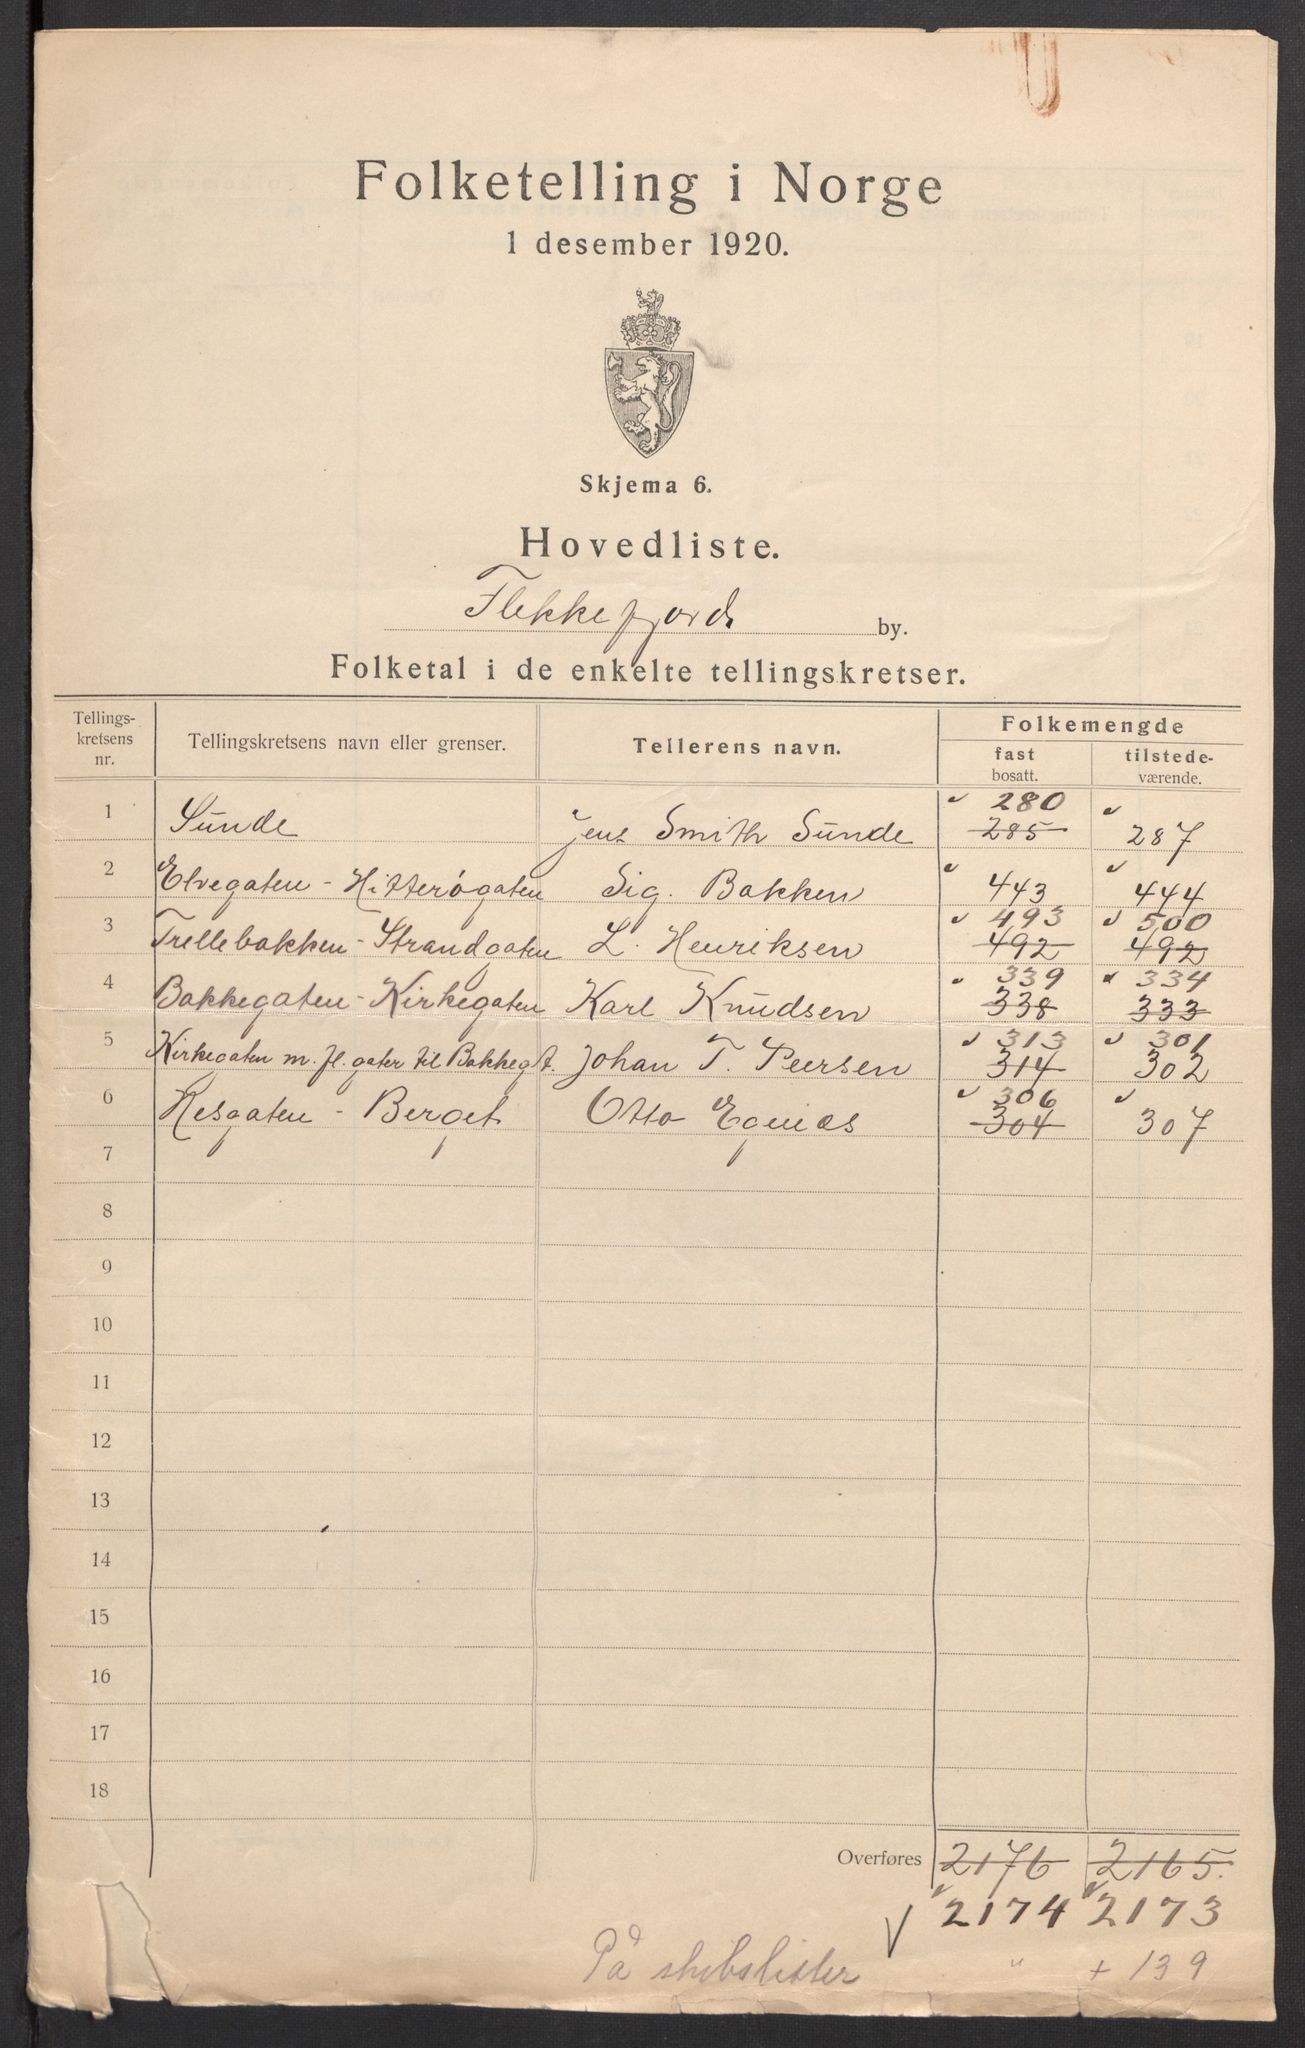 Folketelling i Norge
1 desember 1920.
Skjema 6.
Hovedliste.
Flekkefjord by.
Folketal i de enkelte tellingskretser.
Tellings-
kretsens
nr.
Tellingskretsens navn eller grenser.
Tellerens navn.
Folkemengde
fast
bosatt.
tilstede-
værende.
280
1 Sunde Jens Smith Sunde 285 287
2 Elvegaten - Hitterøgaten Sig. Bakken 443 444
493 500
3 Trellebakken - Strandgaten L. Henriksen 492 492
339 334
4 Bakkegaten - Kirkegaten Karl Knudsen 338 333
313 301
5 Kirkegaten m. fl. gater til Bakkegt. Johan T. Peersen 314 302
306
6 Resgaten - Berget Otto Egenæs 304 307
7
8
9
10
11
12
13
14
15
16
17
18
Overføres 2176 2165.
2174 2173
På skibslister " + 139